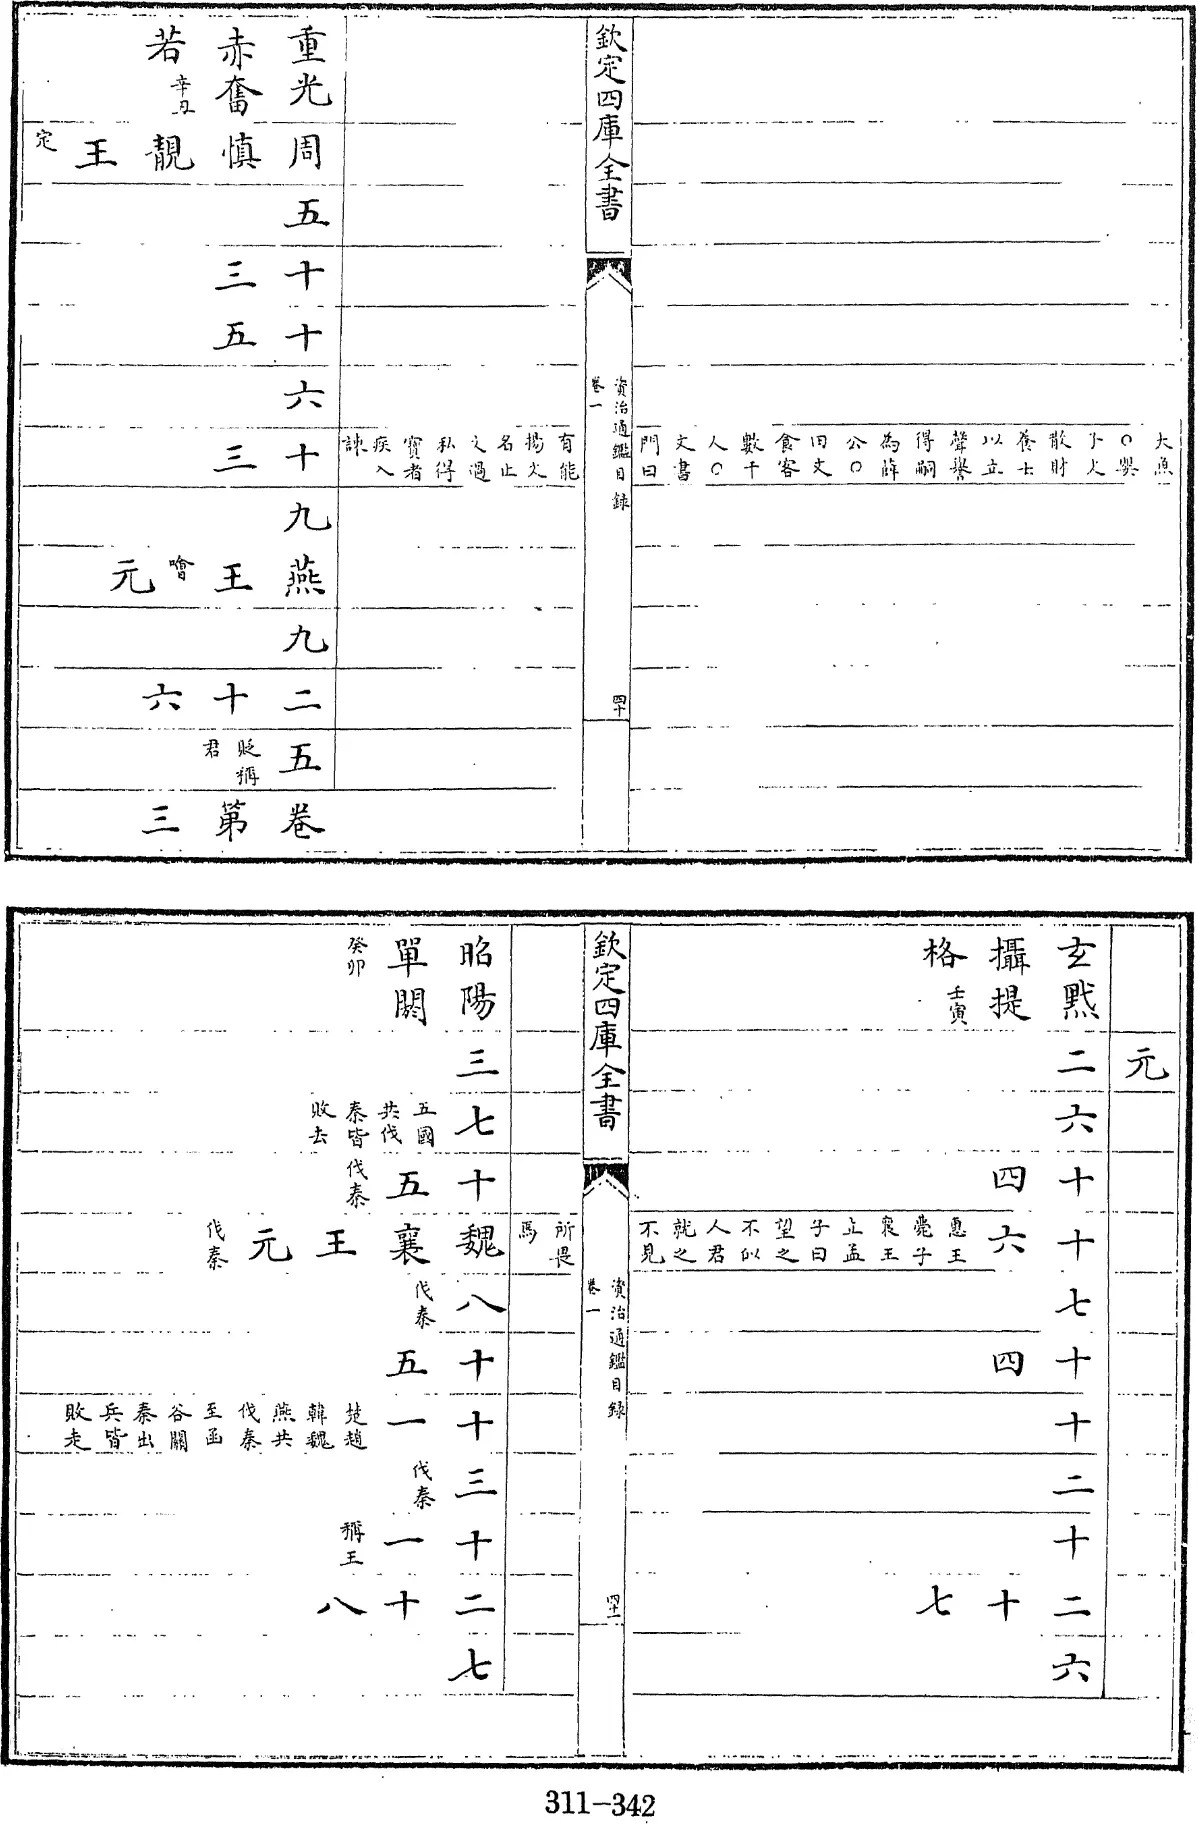 大魚〇嬰子文散財養士以立聲譽得嗣為薛公〇田文食客數千人〇文書門曰
欽定四庫全書
資治通鑑目録
卷一
四十
有能揚文名止文過私得寶者疾入諫
重光赤奮若辛丑
周慎靚王定
五
十三
十五
六
十三
九
燕王噲元
九
二十六
五貶稱君
卷第三
元
玄黓攝提格壬寅
二
六
十四
十六惠王薨子襄王立孟子曰望之不似人君就之不見
七
十四
十
二
十
二十七
六
欽定四庫全書
資治通鑑目録
卷一
四十一
所畏馬
昭陽單閼癸卯
三
七五國共伐秦皆敗去
十五伐秦
魏襄王元伐秦
八伐秦
十五
十一楚趙韓魏燕共伐秦至函谷關秦出兵皆敗走
三伐秦
十一稱王
二十八
七
311-342